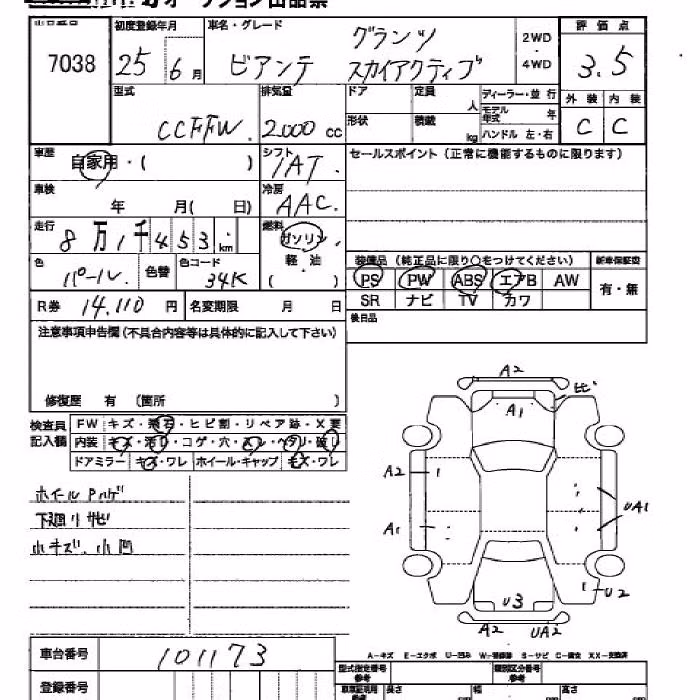 オークション出品票
出品番号 初度登録年月 車名・グレード 評価点
7038 25 6月 ビアンテ グランツ スカイアクティブ 2WD・4WD 3.5
外装 内装
C C
型式 排気量 ドア 定員 ディーラー・並行
CCFFW. 2000cc 人 モデル年式 年
形状 積載 kg ハンドル 左・右
車歴 シフト セールスポイント(正常に機能するものに限ります)
自家用・( ) IAT.
車検 冷房
年 月( 日) AAC.
走行 燃料
8万1千453km ガソリン
軽・油
( )
装備品(純正品に限り○をつけてください) 新車保証書
色 色替 色コード PS PW ABS エアB AW 有・無
パール. 34K SR ナビ TV カワ
R券 14.110円 名変期限 月 日 後日品
注意事項申告欄(不具合内容等は具体的に記入して下さい)
修復歴 有 (箇所 )
検査員記入欄 FW キズ・飛石・ヒビ割・リペア跡・X要
内装 キズ・汚れ・コゲ・穴・スレ・ヘタリ・破レ
ドアミラー キズ・ワレ ホイール・キャップ キズ・ワレ
A2
ヒビ
A1
ホイルPハゲ A2
下廻りサビ UA1
小キズ、小凹 A1
U2
U3
A2 UA2
A-キズ E-エクボ U-凹み W-補修跡 S-サビ C-腐食 XX-交換済
車台番号 101173
型式指定番号 類別区分番号
登録番号
長さ 幅 高さ